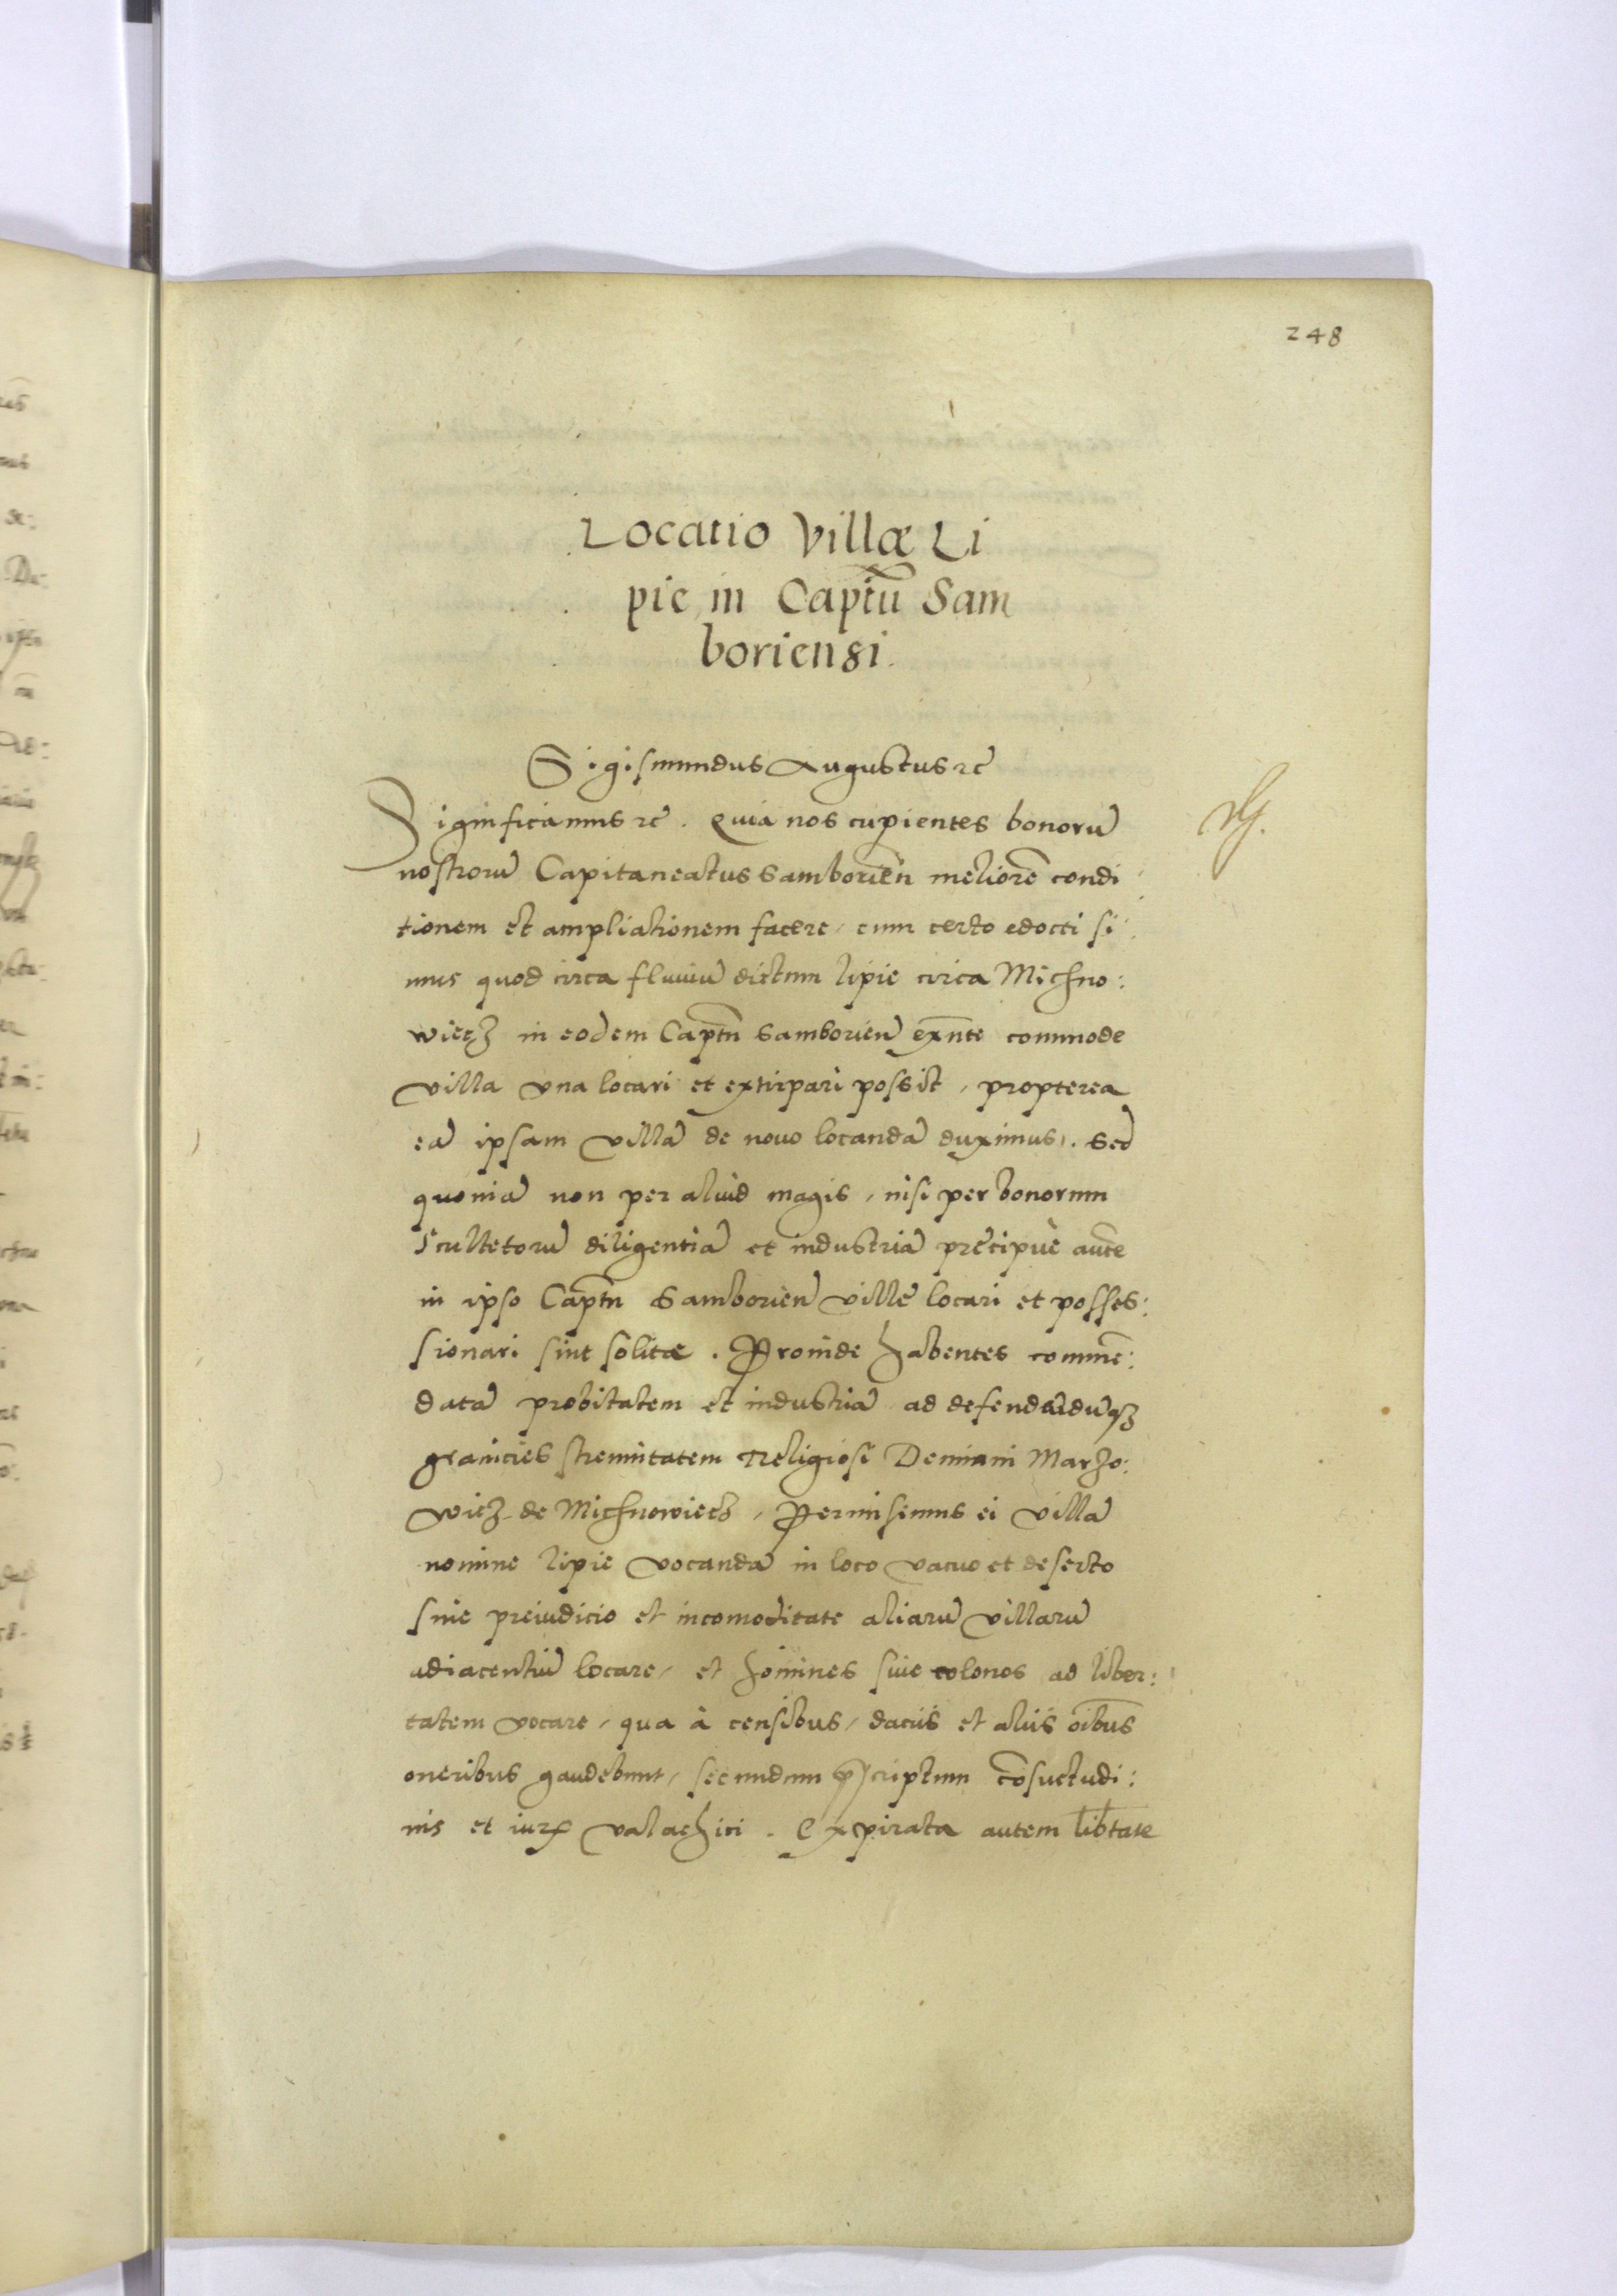 248
Locatio Villæ Li
pie in Capt̃u Sam
boriensi.
Sigismundus Augustus rc̃
Significamus rc̃. Quia nos cupientes bonorũ
nostrorũ Capitaneatus Samborien̄ meliorē condi
tionem et ampliationem facere, cum certo edocti si
mus quod circa fluuiũ dictum lipie circa Michno:
wiecz in eodem Capt̃u Samborien̄ exñte commode
villa vna locari et extirpari possit, propterea
eã ipsam villã de nouo locandã duximus. Sed
quoniã non per aliud magis, nisi per bonorum
Scultetorũ diligentiã et industriã precipuè aut̃e
in ipso Capt̃u Samborien̄ ville locari et posses:
sionari sint solitæ. Proinde habentes comme̅:
datã probitatem et industriã ad defendãdusqz
granicies strenuitatem Religiosi Demiani
wicz de Michnowiecz, Permisimus ei villã
nomine lipie vocandã in loco vacuo et deserto
sine preiudicio et incomoditate aliarũ villarũ
adiacentiũ locare, et homines siue colonos ad liber:
tatem vocare, qua à censibus, daciis et aliis oĩbus
oneribus gaudebunt, secundum p̃scriptum cõsuetudi:
nis et iurꝭ valachici. Expirata autem lib̃tate